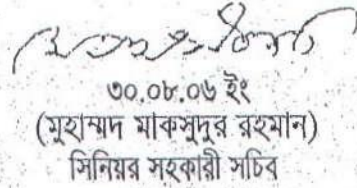 ৩০.০৮.০৬ ইং
(মুহাম্মদ মাকসুদুর রহমান)
সিনিয়র সহকারী সচিব